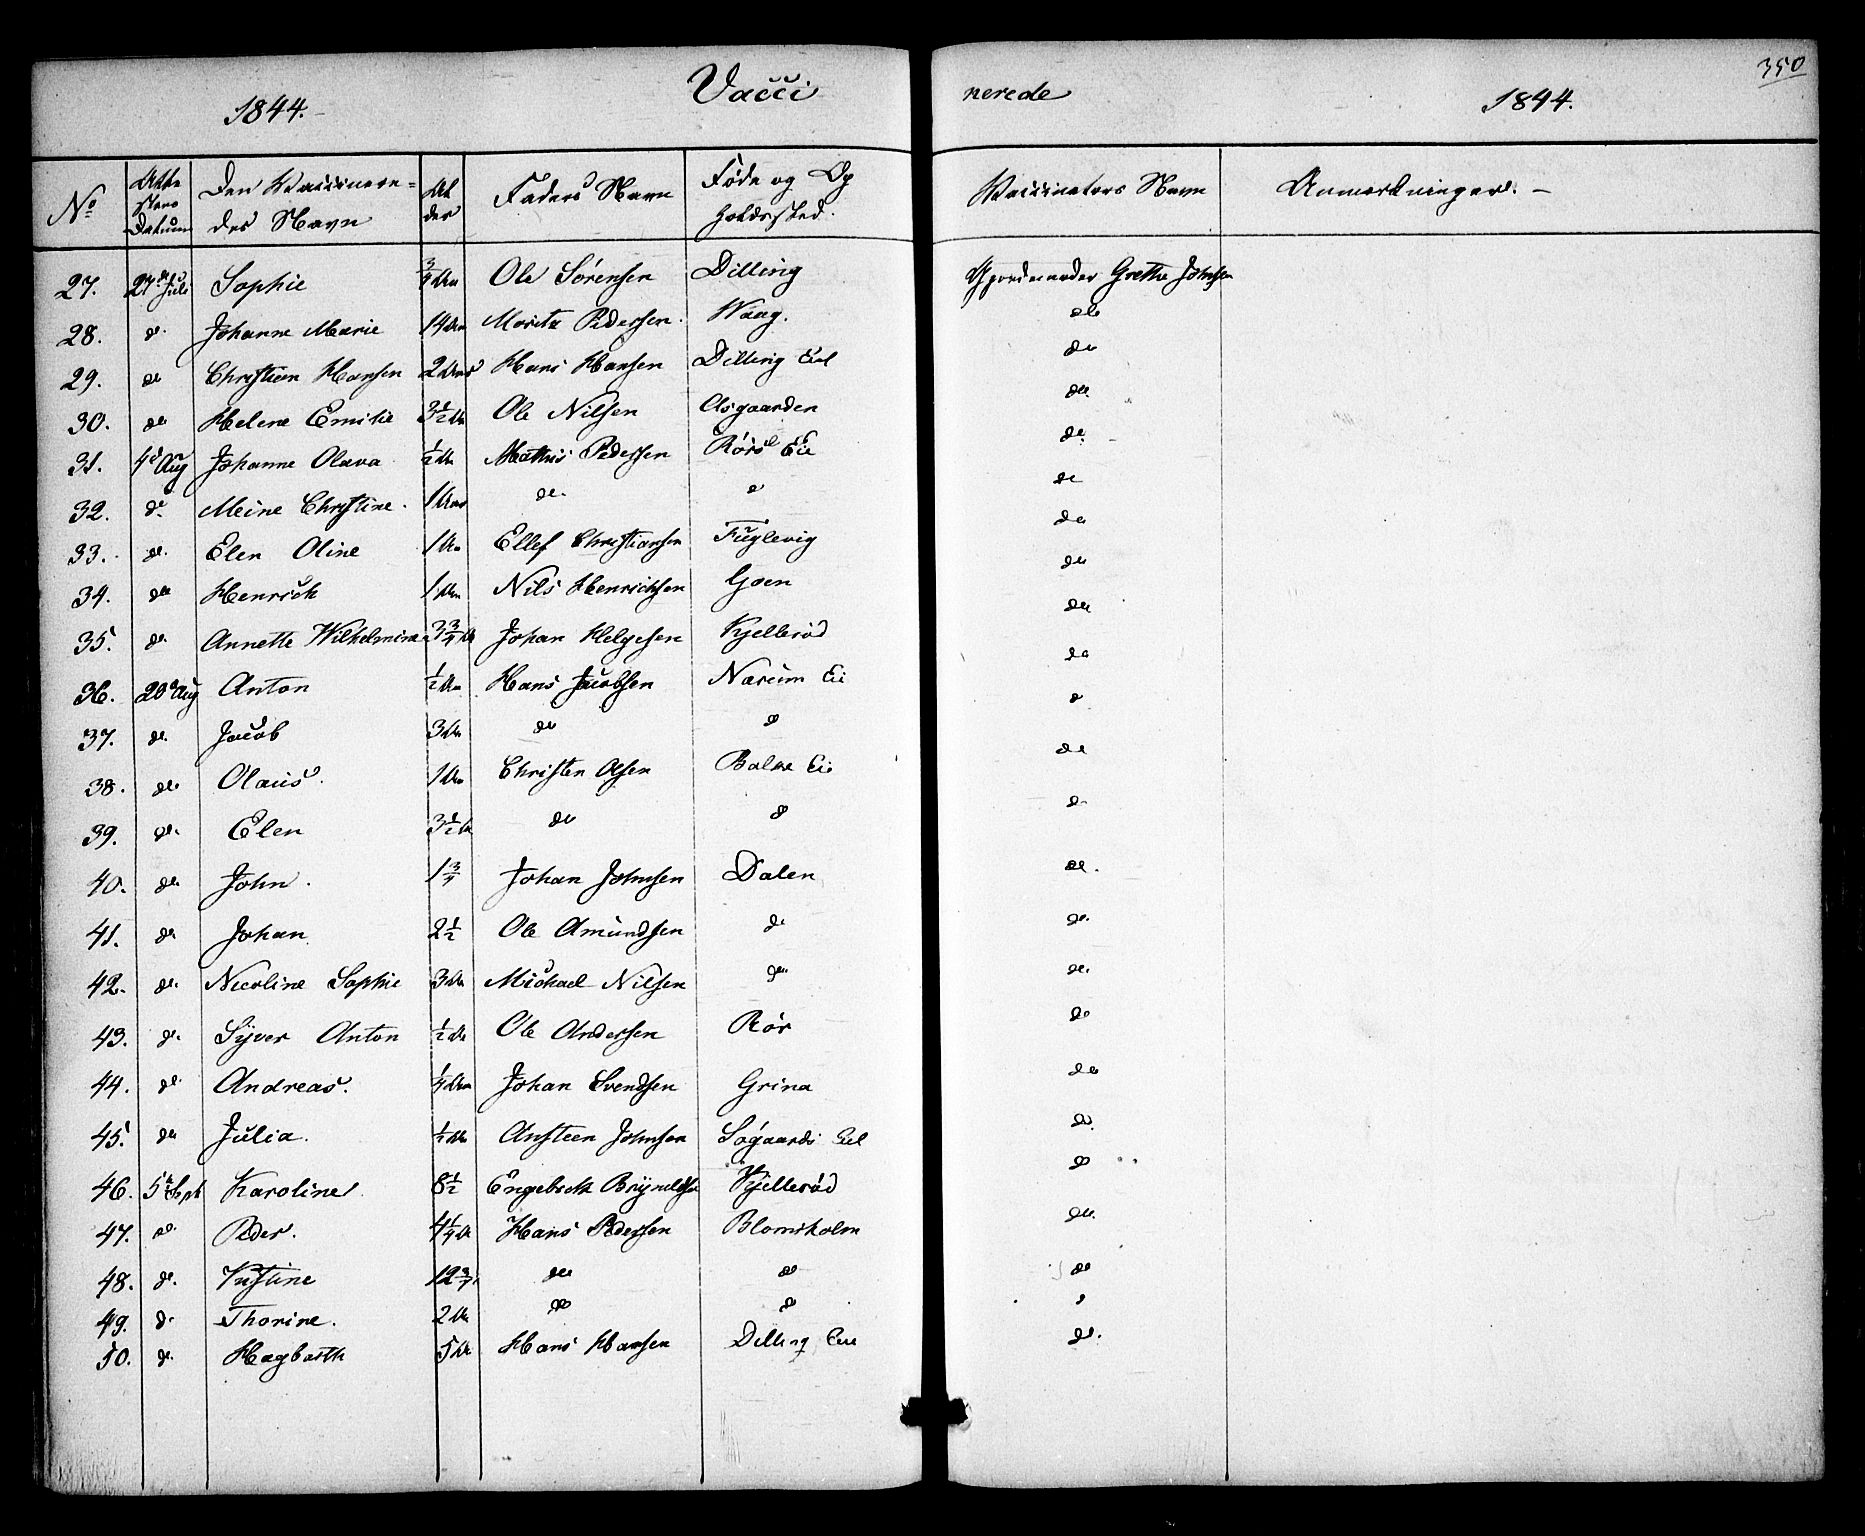 350
1844. Vacci nerede 1844.
No Attestens Datum Den Vaccineredes Navn Alder Faders Navn Føde og Opholdssted. Vaccinatørs Navn Anmærkninger.
27. 27de Juli Sophie 3/4 Aar Ole Sörensen Dilling Gjordemoder Grethe Johnsen
28. do Johanne Marie 14 Aar Moritz Pedersen. Waag. do
29. do Christian Hansen 2 Aar Hans Hansen Dilling Eie do
30. do Helene Emilie 3 1/2 Aar Ole Nilsen Aasgaarden do
31. 4de Aug Johanne Olava 1/2 Aar Mathis Pedersen Rörs Eie do
32. do Meine Christine. 1 Aar do do do
33. do Elen Oline 1 Aar Ellef Christiansen Fuglevig do
34. do Henrich 1 Aar Nils Henrichsen Goen do
35. do Annette Wilhelmine 3 3/4 Aar Johan Helgesen Kjelleröd do
36. 20de Aug Anton 1/2 Aar Hans Jacobsen Nareim Eie do
37. do Jacob 3 Aar do do do
38. do Olaus. 1 Aar Christen Olsen Balke Eie do
39. do Elen 3 1/2 Aar do do do
40. do John. 1 3/4 Johan Johnsen Dalen do
41. do Johan 2 1/2 Ole Amundsen do do
42. do Nicoline Sophie 3 Aar Michael Nilsen do do
43. do Syver Anton 1/2 Aar Ole Andersen Rör do
44. do Andreas. 1/4 Aar Johan Svendsen Grina do
45. do Julia. Ansteen Johnsen Sögaards Eie do
46. 5te Sept Karoline 8 1/2 Engebreth Bryneldsen Kjelleröd do
47. do Peder. 4 1/4 Aar Hans Pedersen Blomsholm do
48. do Kristine 12 3/4 do do do
49. do Thorine. 2 Aar do do do
50. do Hagbarth 5 Aar Hans Hansen Dilling Eie do